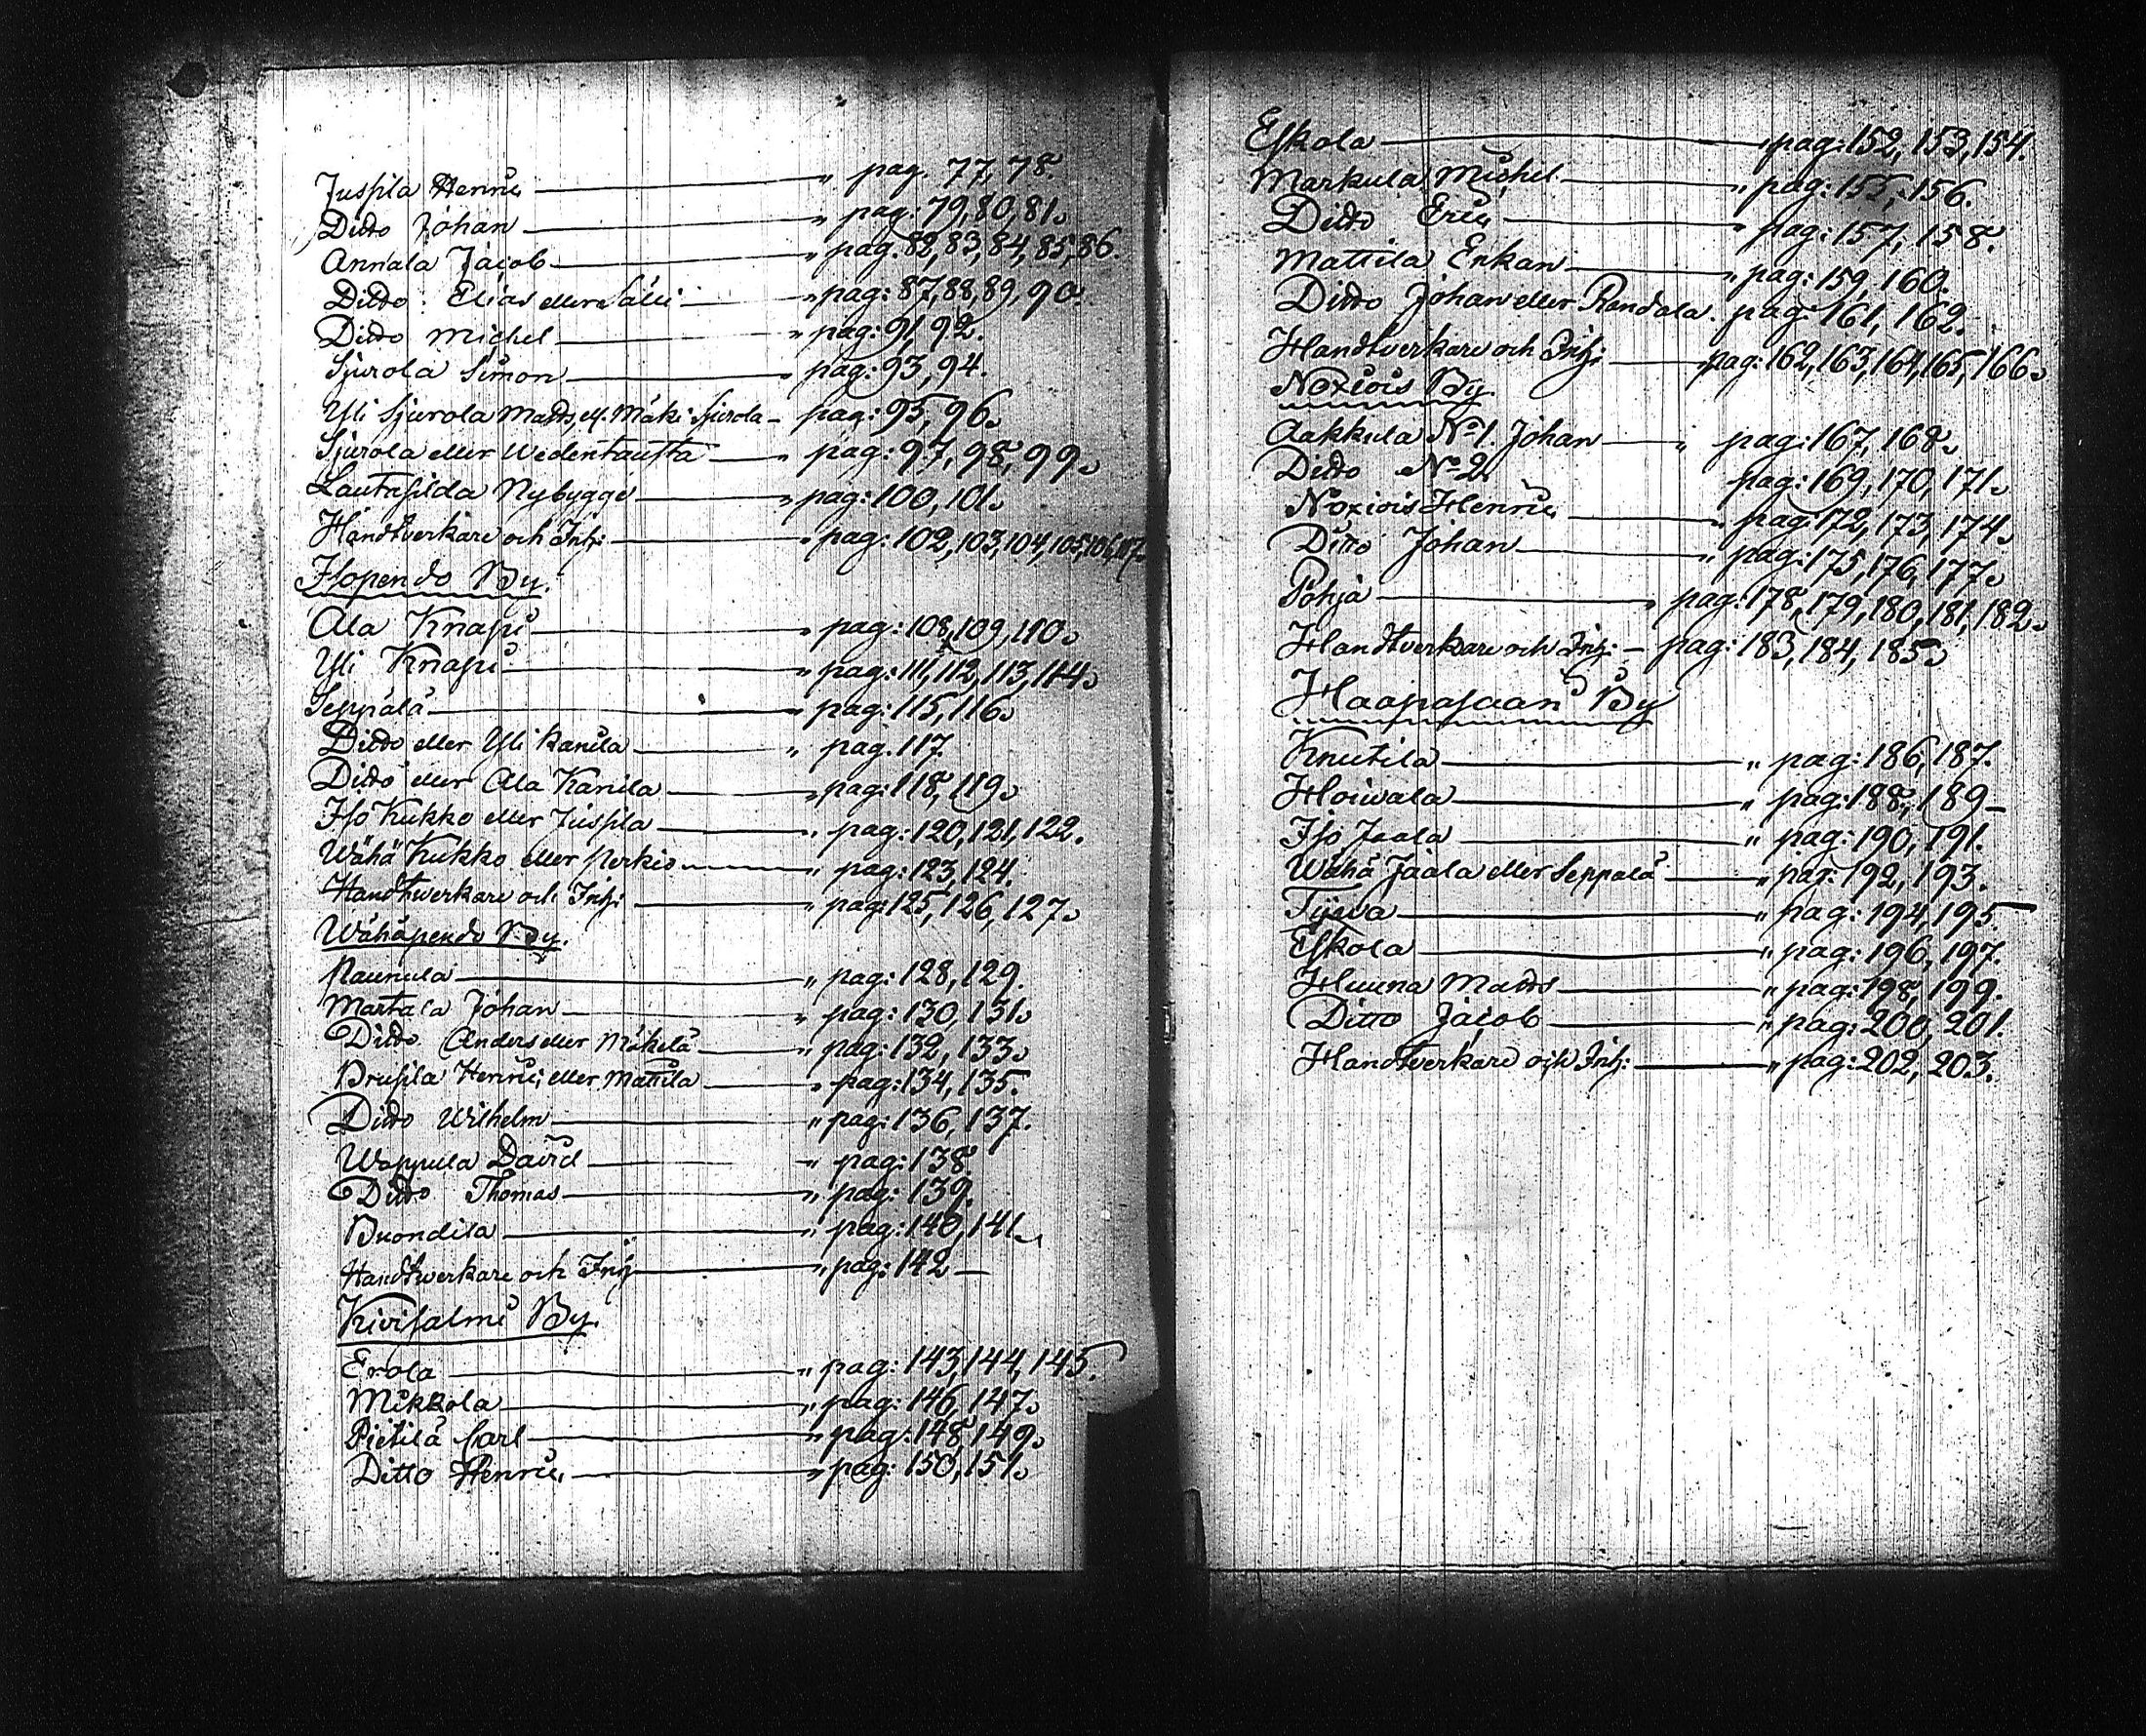 Jussila Henric „ pag. 77, 78.
Ditto Johan „ pag: 79, 80, 81.
Annala Jacob „ pag. 82, 83, 84, 85, 86.
Ditto: Elias eller Salli „ pag: 87, 88, 89, 90.
Ditto Michel „ pag: 91, 92.
Sjurola Simon „ pag: 93, 94.
Yli Sjurola Matts, ell. Mäki Sjurola – pag: 95, 96.
Sjurola eller Wedentausta „ pag: 97, 98, 99.
Lautasilda Nybygge „ pag: 100, 101.
Handtverkare och Inh: „ pag: 102, 103, 104, 105, 106, 107.
Isopendo By.
Ala Knapi „ pag: 108, 109, 110.
Yli Knapi „ pag: 111, 112, 113, 114.
Seppälä „ pag: 115, 116.
Ditto eller Yli Kanila „ pag. 117.
Ditto eller Ala Kanila „ pag: 118, 119.
Iso Kukko eller Jussila „ pag: 120, 121, 122.
Wähä Kukko eller Perkiö „ pag: 123, 124.
Handtwerkare och Inh: „ pag: 125, 126, 127.
Wähäpendo By.
Paunula „ pag: 128, 129.
Martala Johan „ pag: 130, 131.
Ditto Anders eller Mäkelä „ pag: 132, 133.
Prusila Henric eller Mattila „ pag: 134, 135.
Ditto Wilhelm „ pag: 136, 137.
Wappula David „ pag: 138.
Ditto Thomas „ pag: 139.
Buondila „ pag: 140, 141.
Handtwerkare och Inh „ pag: 142 –
Kivisalmi By.
Erola „ pag: 143, 144, 145.
Mikkola „ pag: 146, 147.
Pietilä Carl „ pag: 148, 149.
Ditto Henric „ pag: 150, 151.
Eskola „ pag: 152, 153, 154.
Markula Michel „ pag: 155, 156.
Ditto Eric „ pag: 157, 158.
Mattila Erkan „ pag: 159, 160.
Ditto Johan eller Rendala. pag: 161, 162.
Handtverkare och Inh: pag: 162, 163, 164, 165, 166.
Noxiois By.
Aakkula No 1. Johan „ pag: 167, 168.
Ditto No 2. pag: 169, 170, 171.
Noxiois Henric „ pag: 172, 173, 174.
Ditto Johan „ pag: 175, 176, 177.
Pohja „ pag: 178, 179, 180, 181, 182.
Handtverkare och Inh: – pag: 183, 184, 185.
Haapasaari By
Knutila „ pag: 186, 187.
Hoivala „ pag: 188, 189 –
Iso Jaala „ pag: 190, 191.
Wähä Jaala eller Seppälä „ pag: 192, 193.
Tijwa „ pag: 194, 195 –
Eskola „ pag: 196, 197.
Huuna Matts „ pag: 198, 199.
Ditto Jacob „ pag: 200, 201.
Handtverkare och Inh: „ pag: 202, 203.